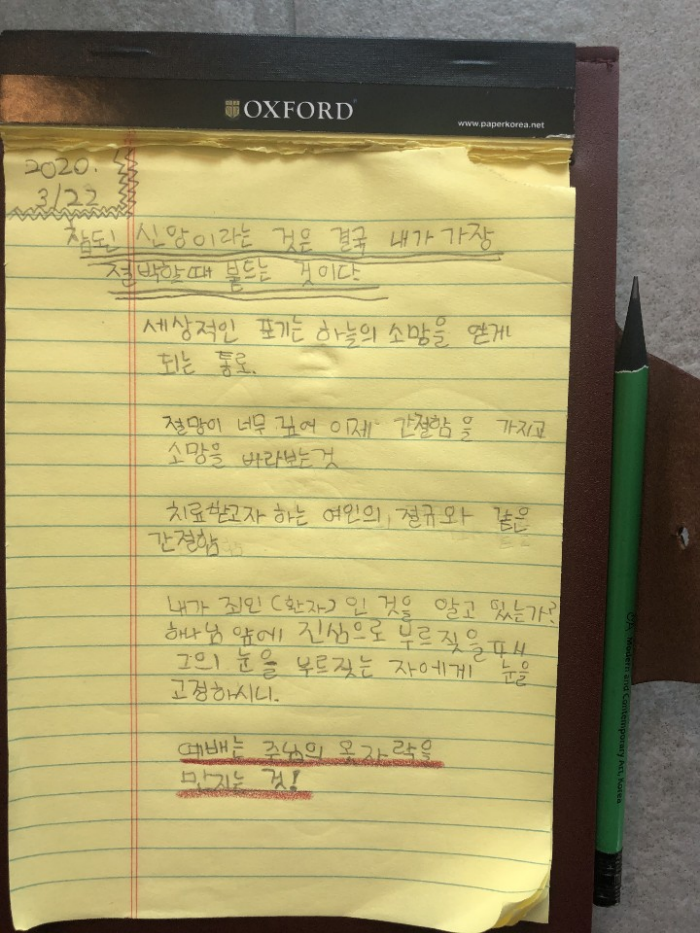 OXFORD
www.paperkorea.net
2020.
3/22
참된 신앙이라는 것은 결국 내가 가장
절박할때 붙드는 것이다
세상적인 포기는 하늘의 소망을 얻게
되는 통로.
절망이 너무 깊어 이제 간절함을 가지고
소망을 바라보는것
치료받고자 하는 여인의 절규와 같은
간절함
내가 죄인(환자)인 것을 알고 있는가?
하나님 앞에 진심으로 부르짖을때
그의 눈을 부르짖는 자에게 눈을
고정하시니.
예배는 주님의 옷자락을
만지는 것!
Modern and Contemporary Art, Korea